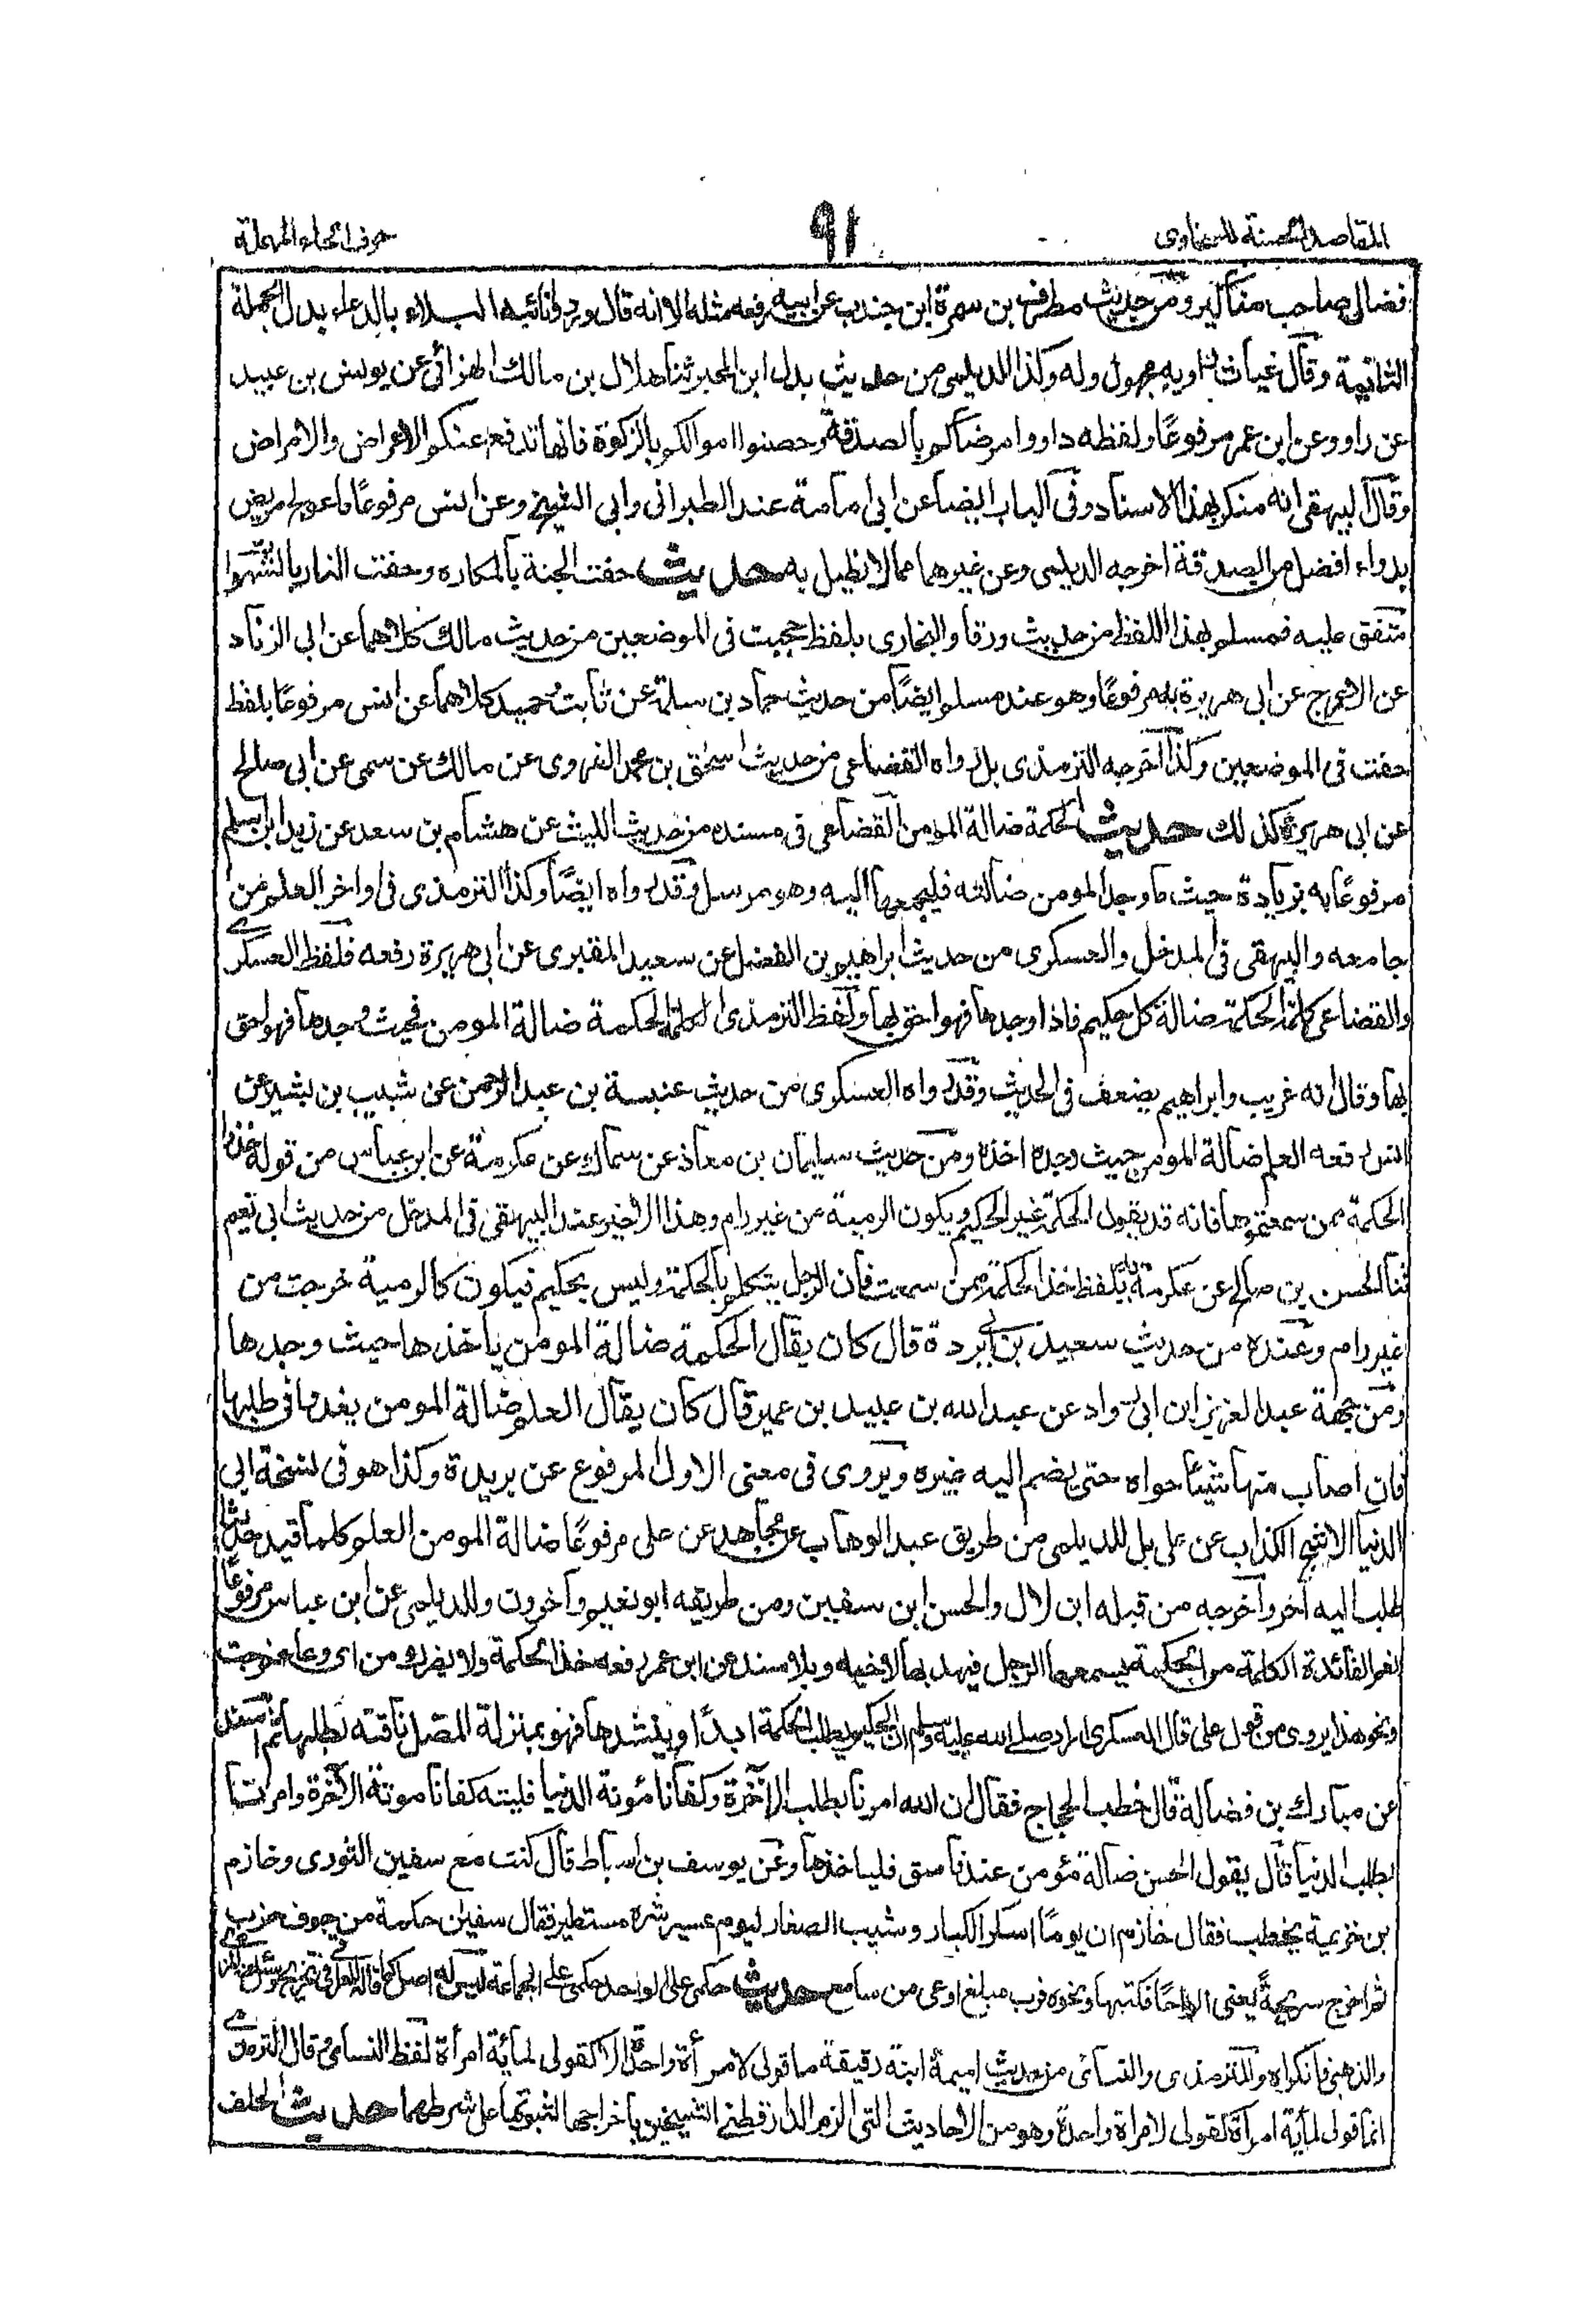 المقاصد الحسنة للسخاوى
٩١
حرف الحاء المهملة
فضال صاحب مناكير ومن حديث مطرف بن سمرة ابن جندب عن ابيه رفعه مثله الا انه قال وردوا نائبة البلاء بالدعاء بدل الجملة
الثانية وقال غياث لراويه مجهول وله وكذا للديلمى من حديث بدل ابن المحبر ثنا هلال بن مالك الهزائى عن يونس بن عبيد
عن راو وعن ابن عمر مرفوعًا ولفظه داووا مرضاكم بالصدقة وحصنوا اموالكم بالزكوة فانها تدفع عنكم الاعراض والامراض
وقال البيهقى انه منكر بهذا الاسناد وفى الباب ايضا عن ابى امامة عند الطبرانى وابى الشيخ وعن انس مرفوعًا ما عولج مريض
بدواء افضل من الصدقة اخرجه الديلمى وعن غيرهما مما لا نطيل به حديث حفت الجنة بالمكاره وحفت النار بالشهوات
متفق عليه فمسلم بهذا اللفظ من حديث ورقا والبخارى بلفظ حجبت فى الموضعين من حديث مالك كلاهما عن ابى الزناد
عن الاعرج عن ابى هريرة به مرفوعًا وهو عند مسلم ايضًا من حديث حماد بن سلمة عن ثابت وحميد كلاهما عن انس مرفوعًا بلفظ
حفت فى الموضعين وكذا اخرجه الترمذى بل رواه القضاعى من حديث اسحق بن محمد الفروى عن مالك عن سمى عن ابى صالح
عن ابى هريرة كذلك حديث الحكمة ضالة المومن القضاعى فى مسنده من حديث الليث عن هشام بن سعد عن زيد ابن اسلم
مرفوعًا به بزيادة حيث ما وجد المومن ضالته فليجمعها اليه وهو مرسل وقد رواه ايضًا وكذا الترمذى فى اواخر العلم من
جامعه والبيهقى فى المدخل والعسكرى من حديث ابراهيم بن الفضل عن سعيد المقبرى عن ابى هريرة رفعه فلفظ العسكرى
والقضاعى كلمة الحكمة ضالة كل حكيم فاذا وجدها فهو احق بها ولفظ الترمذى الكلمة الحكمة ضالة المومن فحيث وجدها فهو احق
بها وقال انه غريب وابراهيم يضعف فى الحديث وقد رواه العسكرى من حديث عنبسة بن عبد الرحمن عن شبيب بن بشير عن
انس رفعه العلم ضالة المومن حيث وجده اخذه ومن حديث سليمان بن معاذ عن سماك عن عكرمة عن ابن عباس من قوله خذوا
الحكمة ممن سمعتموها فانه قد يقول الحكمة غير الحكيم ويكون الرمية من غير رام وهذا الاخير عند البيهقى فى المدخل من حديث ابى نعيم
ثنا الحسن بن صالح عن عكرمة بلفظ خذ الحكمة ممن سمعت فان الرجل يتكلم بالحكمة وليس بحكيم فيكون كالرمية خرجت من
غير رام وعنده من حديث سعيد بن ابى بردة قال كان يقال الحكمة ضالة المومن ياخذها حيث وجدها
ومن جهة عبد العزيز ابن ابى رواد عن عبد الله بن عبيد بن عمير قال كان يقال العلم ضالة المومن يغدوا فى طلبها
فان اصاب منها شيئا حواه حتى يضم اليه غيره ويروى فى معنى الاول المرفوع عن بريدة وكذا هو فى نسخة ابى
الدنيا الاشج الكذاب عن على بل للديلمى من طريق عبد الوهاب عن مجاهد عن على مرفوعًا ضالة المومن العلم كلما قيد حديثا
طلب اليه آخر واخرجه من قبله ابن لال والحسن ابن سفيين ومن طريقه ابو نعيم وآخرون وللديلمى عن ابن عباس مرفوعًا
نعم الفائدة الكلمة من الحكمة يسمعها الرجل فيهديها لاخيه وبلا سند عن ابن عمر رفعه خذ الحكمة ولا يضرك من اى وعاء خرجت
ونحو هذا يروى من قول على قال العسكرى اراد صلى الله عليه وسلم ان الحكيم يطلب الحكمة ابدًا وينشدها فهو بمنزلة المضل ناقته يطلبها ثم اسند
عن مبارك بن فضالة قال خطب الحجاج فقال ان الله امرنا بطلب الآخرة وكفانا مؤنة الدنيا فليته كفانا مؤنة الآخرة وامرنا
بطلب الدنيا قال يقول الحسن ضالة مؤمن عند فاسق فلياخذها وعن يوسف بن اسباط قال كنت مع سفين الثورى وخازم
بن خزيمة يخطب فقال خازم ان يومًا اسكر الكبار وشيب الصغار ليوم عسير شره مستطير فقال سفين حكمة من جوف خرب
ثم اخرج سريحةً يعنى الواحًا فكتبها ونحوه فرب مبلغ اوعى من سامع حديث حكمى على الواحد حكمى على الجماعة ليس له اصل كما قاله العراقى فى تخريجه وسئل عنه المزى
والذهبى فانكراه وللترمذى والنسائى من حديث اميمة ابنة رقيقة ما قولى لامرأة واحدة الا كقولى لمائة امرأة لفظ النسائى وقال الترمذى
انما قولى لمائة امرأة كقولى لامراة واحدة وهو من الاحاديث التى الزم الدارقطنى الشيخين باخراجها لثبوتها على شرطهما حديث الحلف